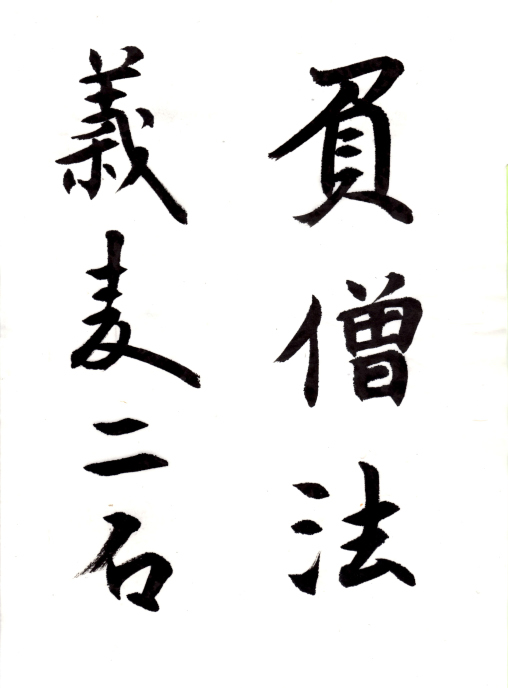 負僧法
義麦二石